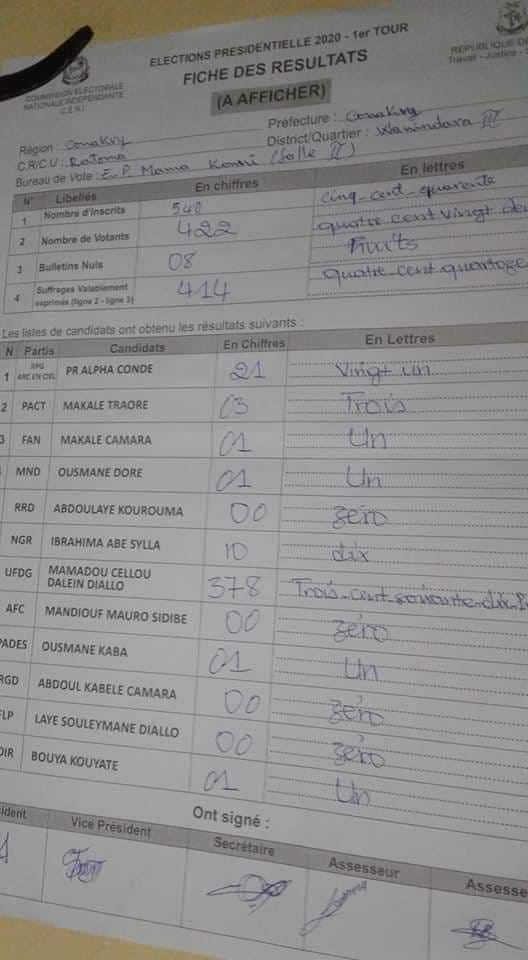 ELECTIONS PRESIDENTIELLE 2020 - 1er TOUR
FICHE DES RESULTATS
(A AFFICHER)
COMMISSION ELECTORALE
NATIONALE INDÉPENDANTE
C.E.N.I
REPUBLIQUE DE
Travail - Justice - S
Région : Conakry
Préfecture : Conakry
C.R/C.U : Ratoma
District/Quartier : Wanindara III
Bureau de Vote : E.P Mama Konni (Salle II)
N° Libellés En chiffres En lettres
1 Nombre d'inscrits 540 cinq-cent-quarente
2 Nombre de Votants 422 quatre cent vingt de
3 Bulletins Nuls 08 Huits
4 Suffrages Valablement exprimés (ligne 2 - ligne 3) 414 quatre-cent quatorze
Les listes de candidats ont obtenu les résultats suivants :
N Partis Candidats En Chiffres En Lettres
1 RPG ARC EN CIEL PR ALPHA CONDE 21 Vingt un
2 PACT MAKALE TRAORE 03 Trois
3 FAN MAKALE CAMARA 01 Un
MND OUSMANE DORE 01 Un
RRD ABDOULAYE KOUROUMA 00 zéro
NGR IBRAHIMA ABE SYLLA 10 dix
UFDG MAMADOU CELLOU DALEIN DIALLO 378 Trois-cent-soixante-dix-
AFC MANDIOUF MAURO SIDIBE 00 zéro
PADES OUSMANE KABA 01 Un
RGD ABDOUL KABELE CAMARA 00 zéro
FLP LAYE SOULEYMANE DIALLO 00 zéro
DIR BOUYA KOUYATE 01 Un
Ont signé :
sident Vice Président Secrétaire Assesseur Assesse